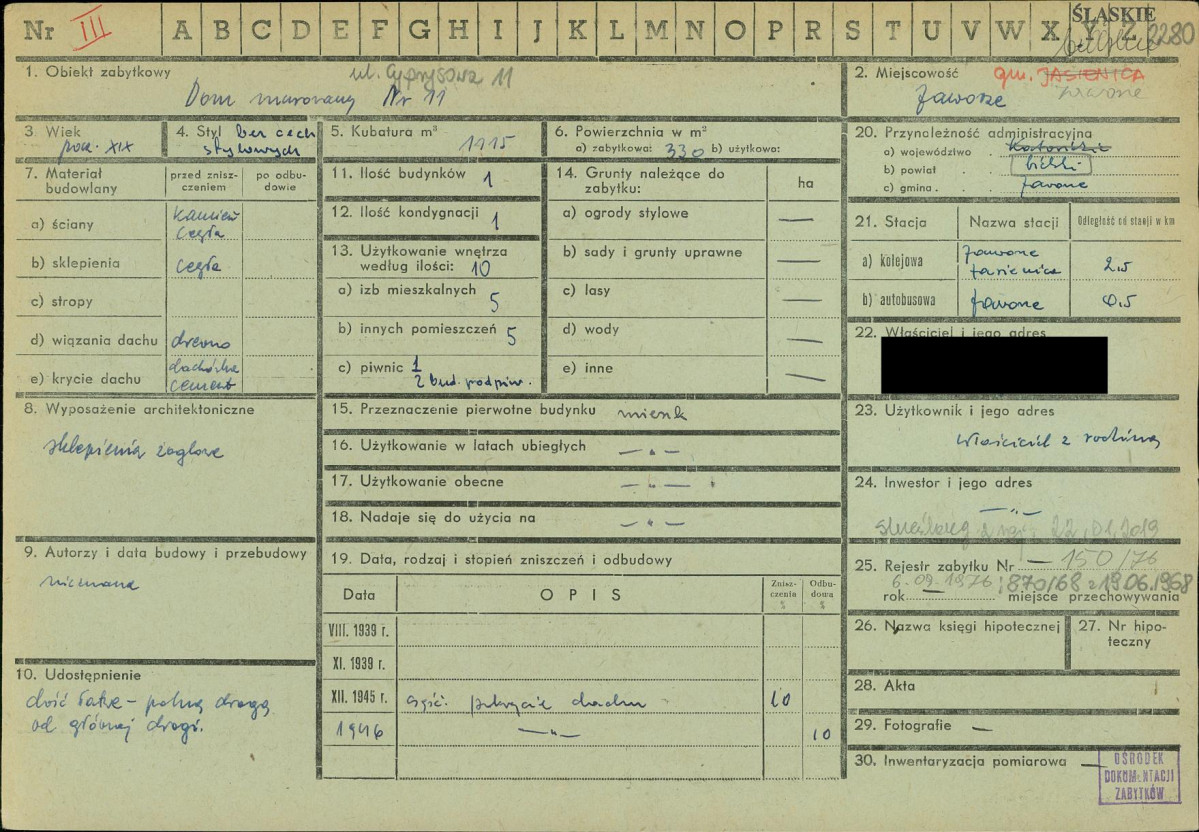 Nr III A B C D E F G H I J K L M N O P R S T U V W X Y Z 2280
ŚLĄSKIE
bielskie
1. Obiekt zabytkowy
ul. Cyprysowa 11
Dom murowany Nr 11
2. Miejscowość gm. JASIENICA
Jaworze
Jaworze
3. Wiek
pocz. XIX
4. Styl bez cech
stylowych
5. Kubatura m³
1115
6. Powierzchnia w m²
a) zabytkowa: 330 b) użytkowo:
7. Materiał
budowlany
przed znisz-
czeniem
po odbu-
dowie
a) ściany
kamień
cegła
b) sklepienia
cegła
c) stropy
d) wiązania dachu
drewno
e) krycie dachu
dachówka
cement
8. Wyposażenie architektoniczne
sklepienia żaglowe
9. Autorzy i data budowy i przebudowy
nieznana
10. Udostępnienie
dość łatwe – polną drogą
od głównej drogi.
11. Ilość budynków 1
12. Ilość kondygnacji 1
13. Użytkowanie wnętrza
według ilości: 10
a) izb mieszkalnych 5
b) innych pomieszczeń 5
c) piwnic 1
2 bud. podpiw.
14. Grunty należące do
zabytku:
ha
a) ogrody stylowe —
b) sady i grunty uprawne —
c) lasy —
d) wody —
e) inne —
15. Przeznaczenie pierwotne budynku mieszk
16. Użytkowanie w latach ubiegłych — „ —
17. Użytkowanie obecne — „ —
18. Nadaje się do użycia na — „ —
19. Data, rodzaj i stopień zniszczeń i odbudowy
Data
OPIS
Znisz-
czenia
%
Odbu-
dowa
%
VIII. 1939 r.
XI. 1939 r.
XII. 1945 r. część. pokrycie dachu 10
1946 — „ — 10
20. Przynależność administracyjna
a) województwo . Katowickie
b) powiat . bielski
c) gmina . Jaworze
21. Stacja
Nazwa stacji
Odległość od stacji w km
a) kolejowa
Jaworze
Jasienica
2.5
b) autobusowa
Jaworze
0.5
22. Właściciel i jego adres
23. Użytkownik i jego adres
właściciel z rodziną
24. Inwestor i jego adres
— „ —
22.01.2019
25. Rejestr zabytku Nr — 150/76
6.09.1976; 870/68 z 19.06.1968
rok miejsce przechowywania
26. Nazwa księgi hipotecznej
27. Nr hipo-
teczny
28. Akta
29. Fotografie —
30. Inwentaryzacja pomiarowa —
OŚRODEK
DOKUMENTACJI
ZABYTKÓW